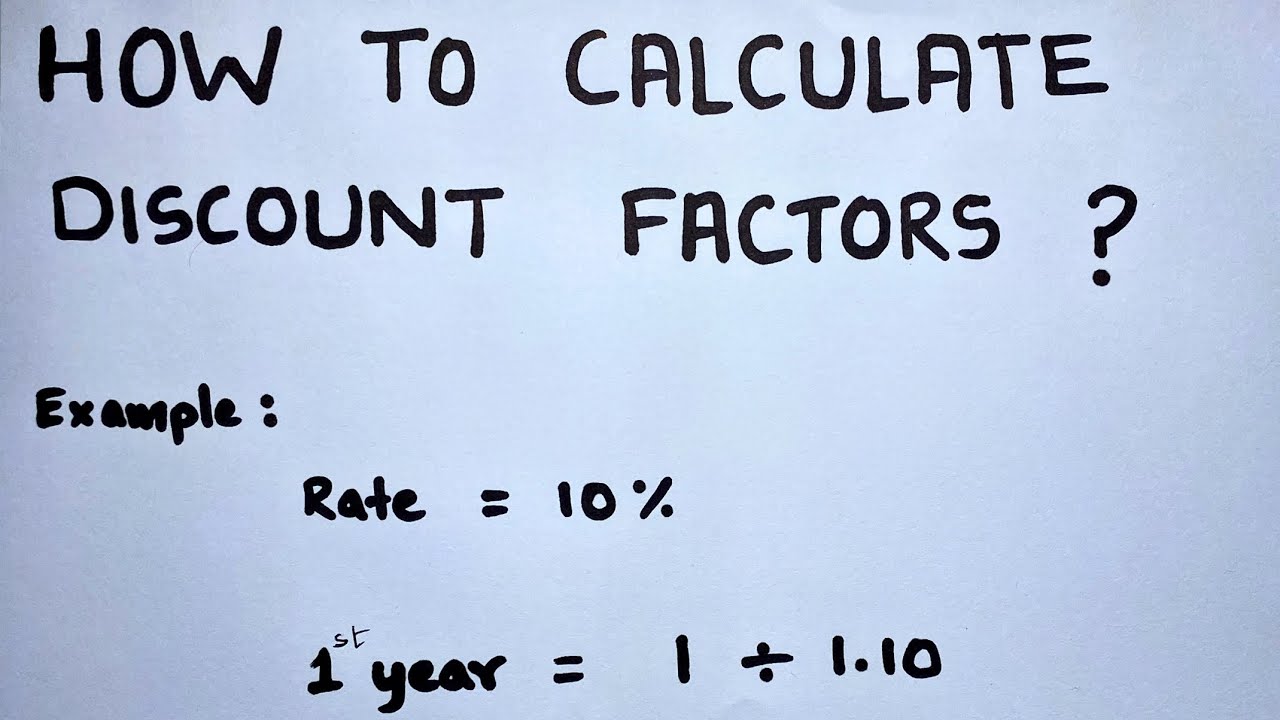 HOW TO CALCULATE
DISCOUNT FACTORS ?
Example :
Rate = 10%
1st year = 1 ÷ 1.10